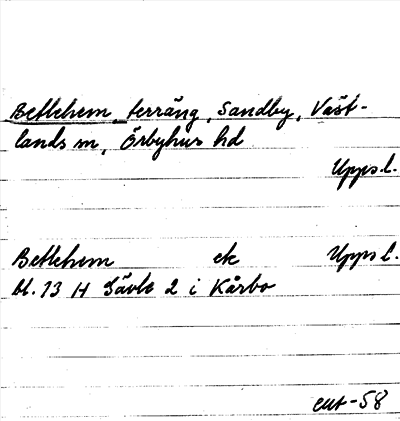 Betlehem, terräng, Sandby, Väst-
lands sn, Örbyhus hd
Upps.l.
Betlehem ek Upps l.
bl. 13 H Gävle 2 i Kårbo
eut-58